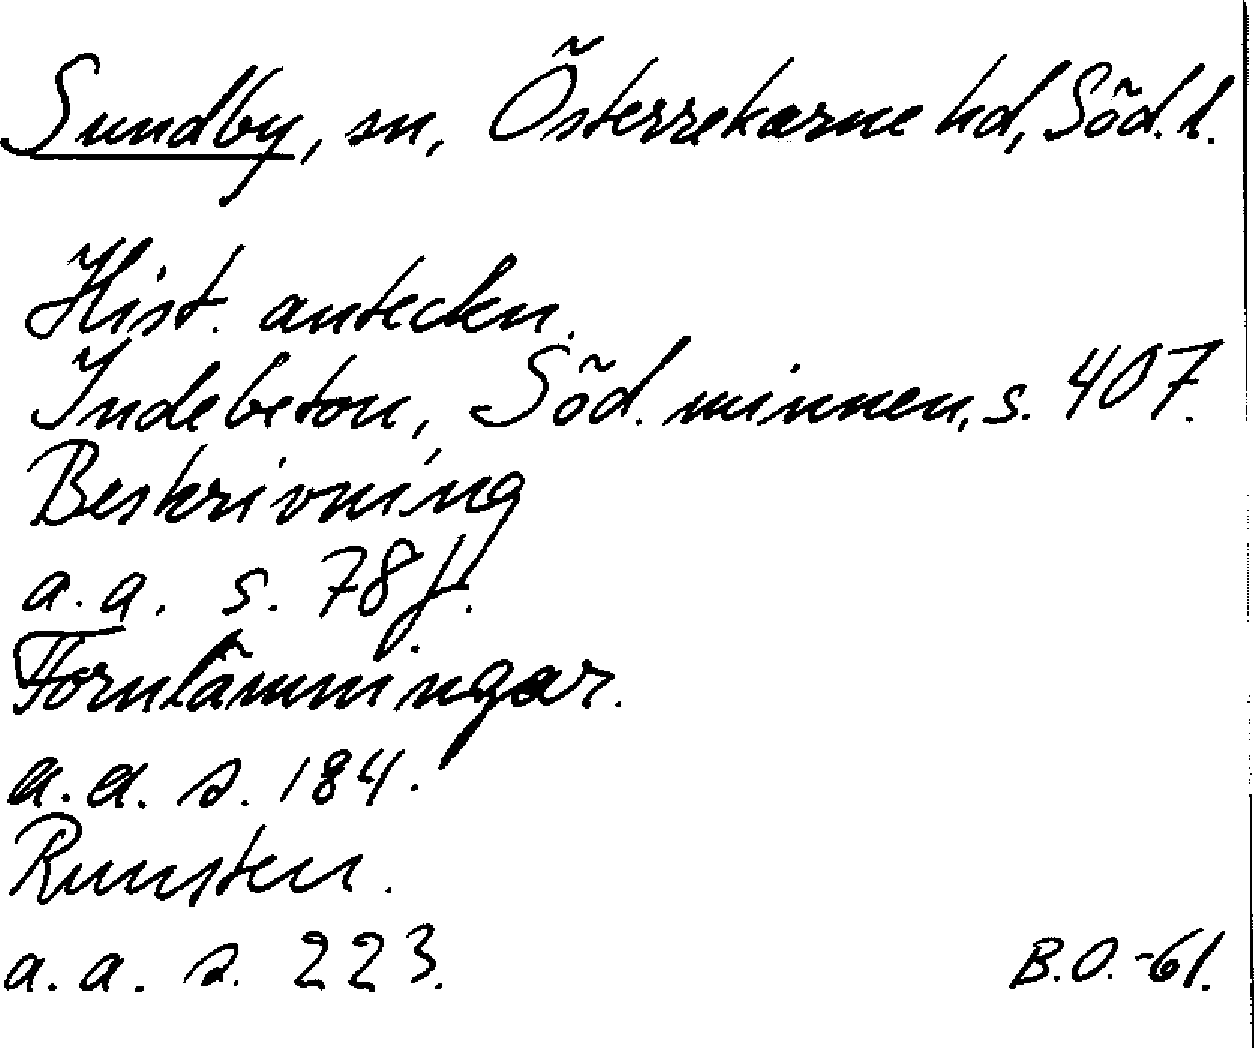 Sundby, sn, Österrekarne hd, Söd. l.
Hist. anteckn.
Indebetou, Söd. minnen, s. 407.
Beskrivning
a.a. s. 78 f.
Fornlämningar.
a.a. s. 184.
Runsten.
a.a. s. 223.
B.O.-61.